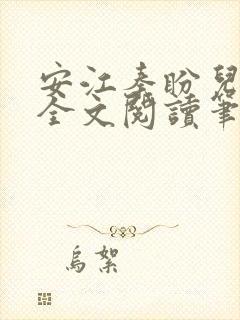 安江秦盼兒
全文閱讀筆
烏絮